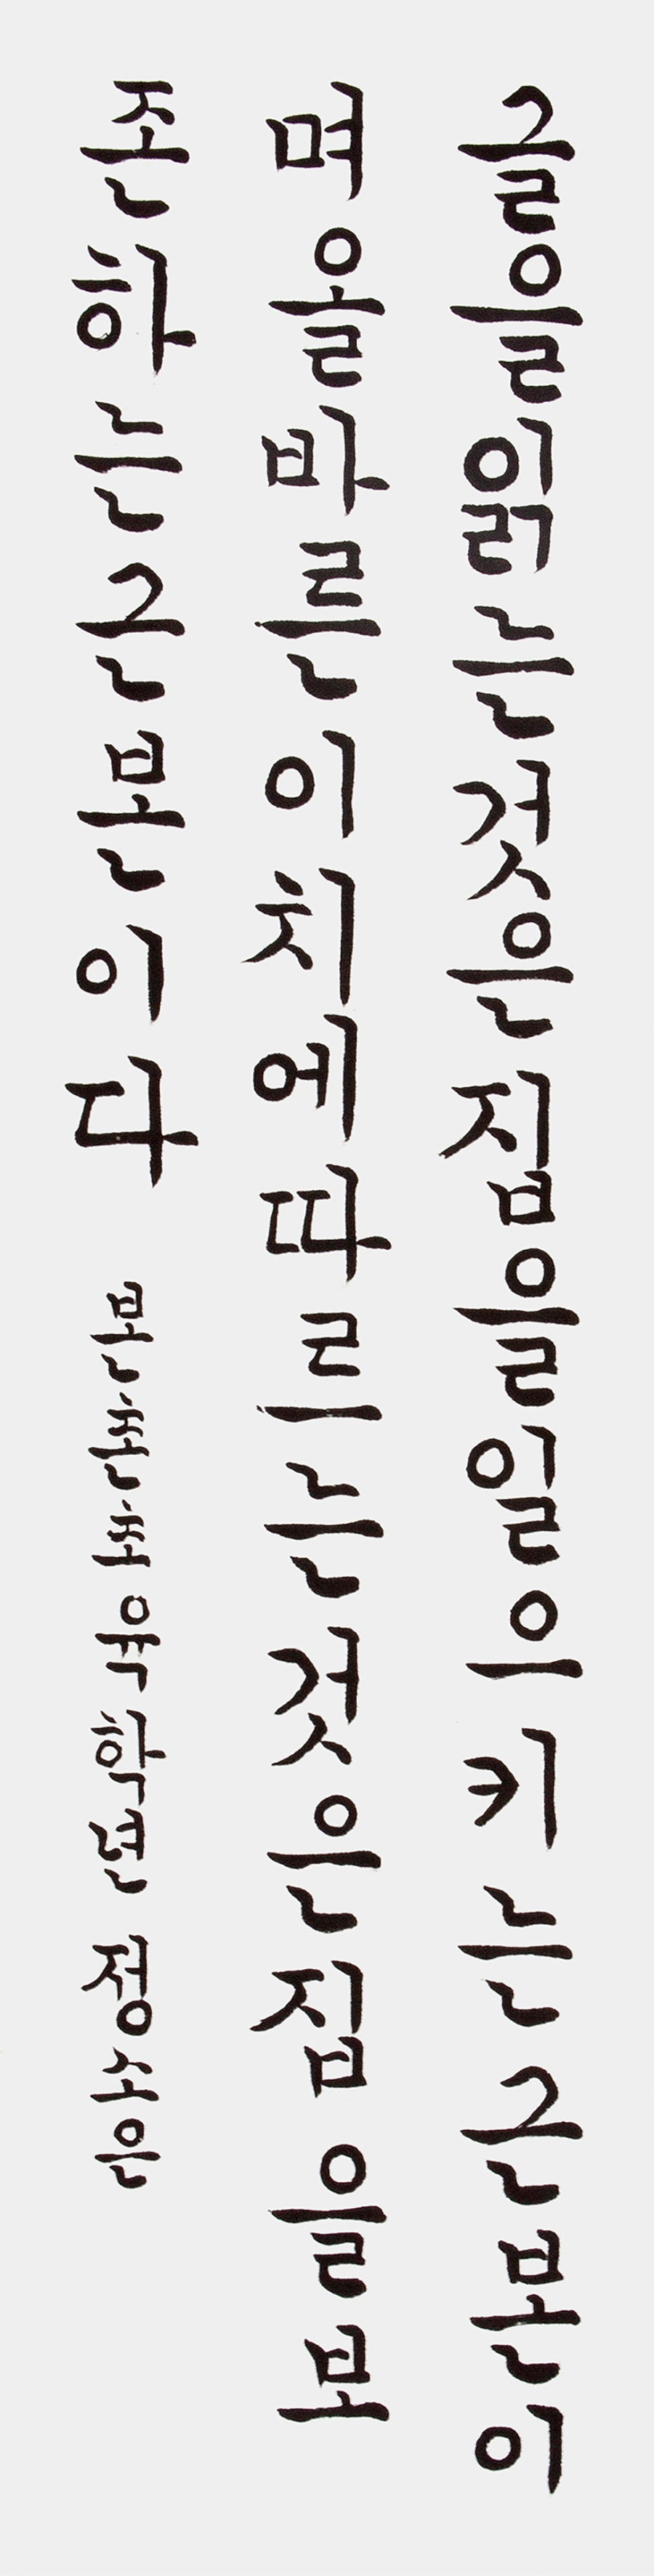 글을읽는것은집을일으키는근본이
며올바른이치에따르는것은집을보
존하는근본이다 본촌초육학년 정소은